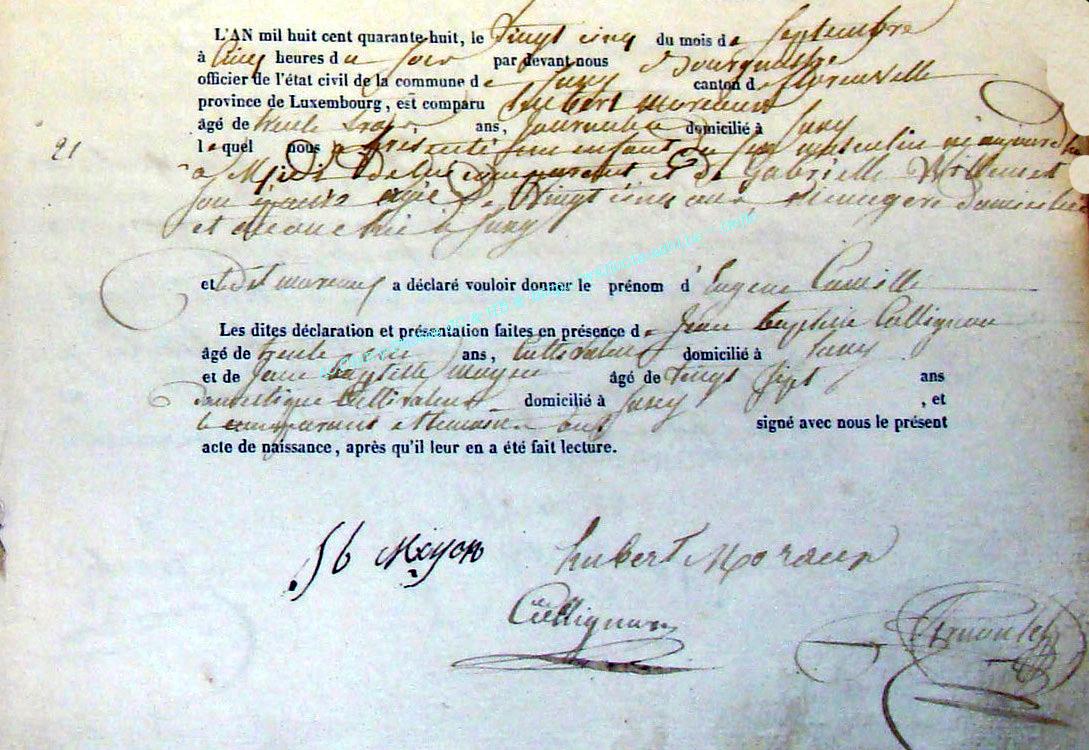 L'AN mil huit cent quarante-huit, le Vingt cinq du mois de Septembre
à Cinq heures du Soir par devant nous Bourgmestre
officier de l'état civil de la commune de canton de florenville
province de Luxembourg, est comparu hubert moreaux
âgé de trente trois ans, domicilié à
21
le quel nous a présenté un enfant du sex masculin né aujourd'hui
à Midi de lui comparant et de Gabrielle Willemet
son épouse agée de Vingt cinq ans Menagere domiciliée
et accouchée à
et le dt moreaux a déclaré vouloir donner le prénom d' Eugene Camille
Les dites déclaration et présentation faites en présence de Jean baptiste Collignon
âgé de trente ans, Cultivateur domicilié à
et de Jean Baptiste âgé de Vingt Sept ans
Domestique Cultivateur domicilié à , et
le comparant et temoins ont signé avec nous le présent
acte de naissance, après qu'il leur en a été fait lecture.
hubert Moraux
Collignon